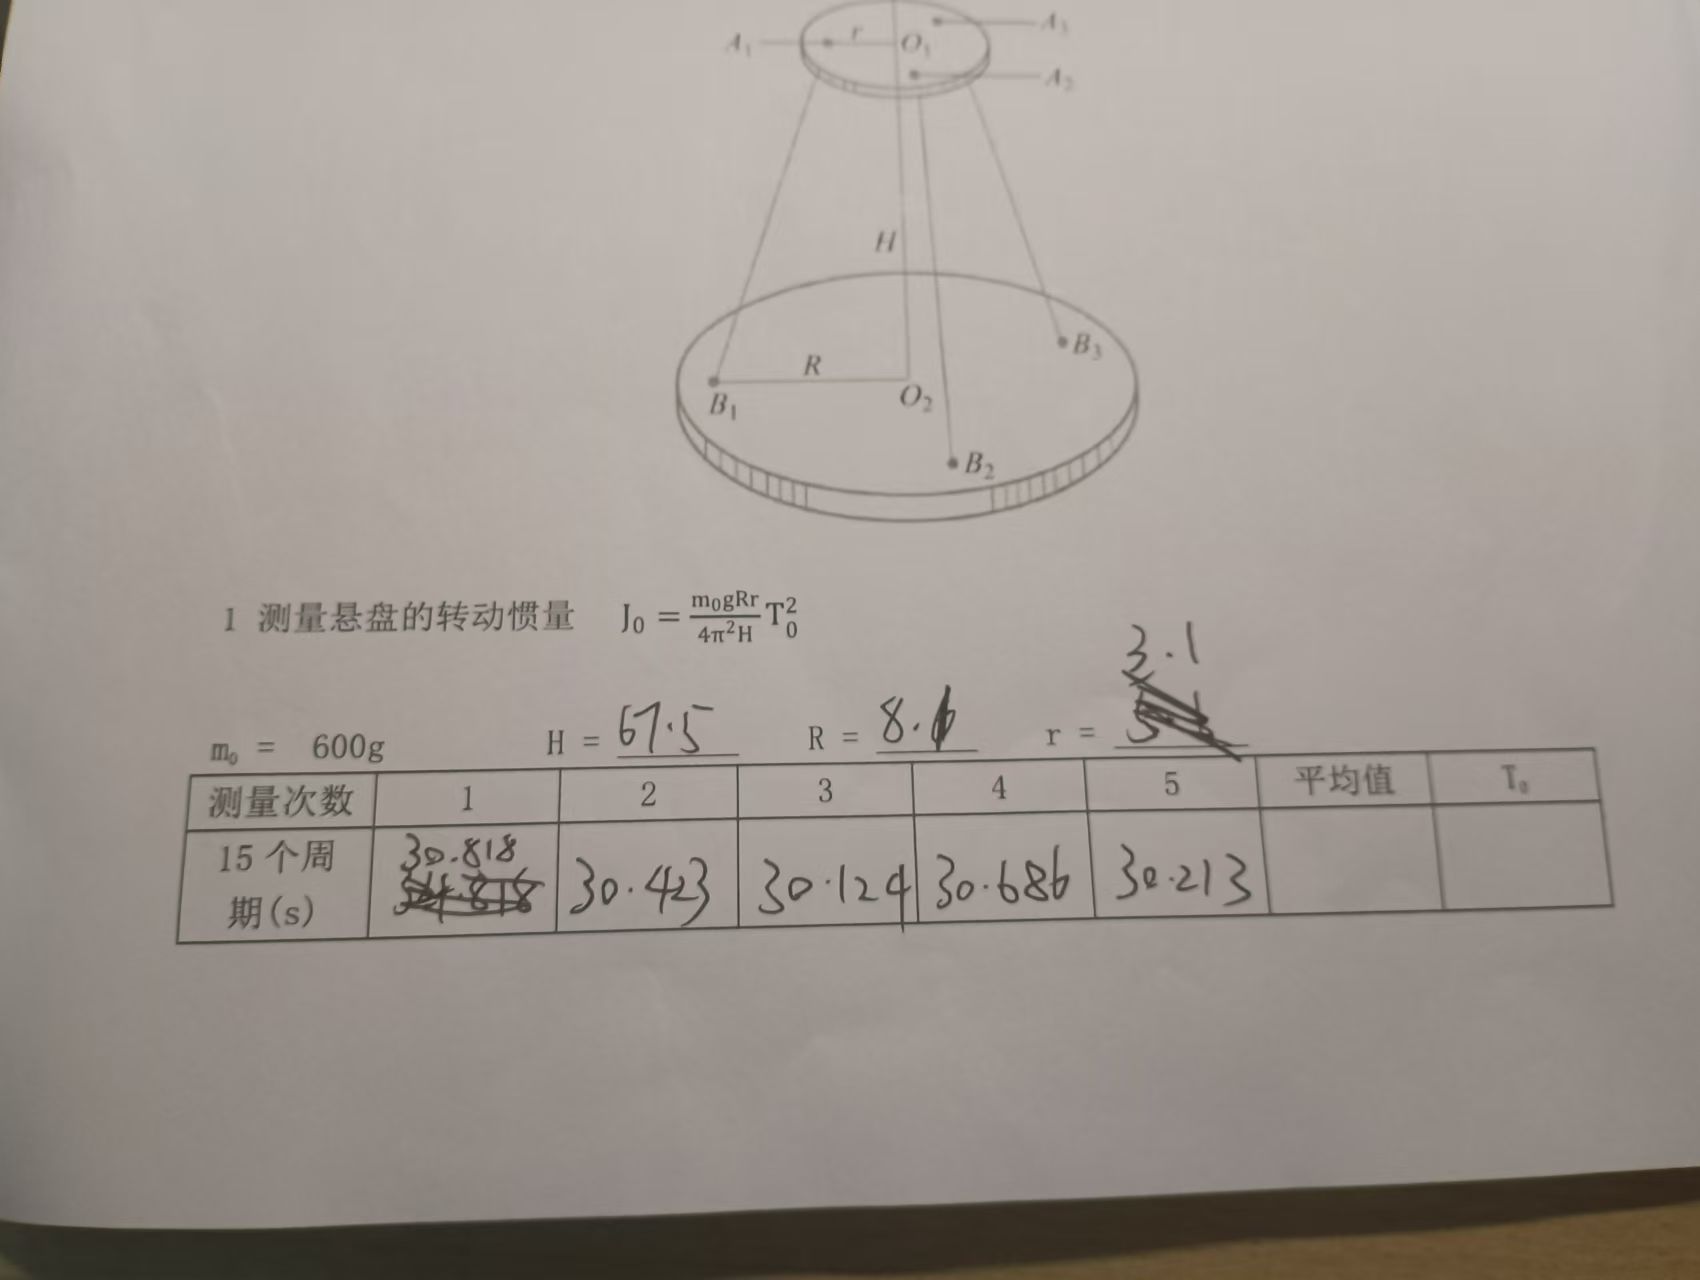 A₁ r O₁ A₃
A₂
H
R B₃
B₁ O₂
B₂
1 测量悬盘的转动惯量 J₀ = m₀gRr/4π²H T₀²
3.1
m₀ = 600g H = 67.5 R = 8. r =
测量次数 1 2 3 4 5 平均值 T₀
15个周 30.818
期(s) 30.423 30.124 30.686 30.213